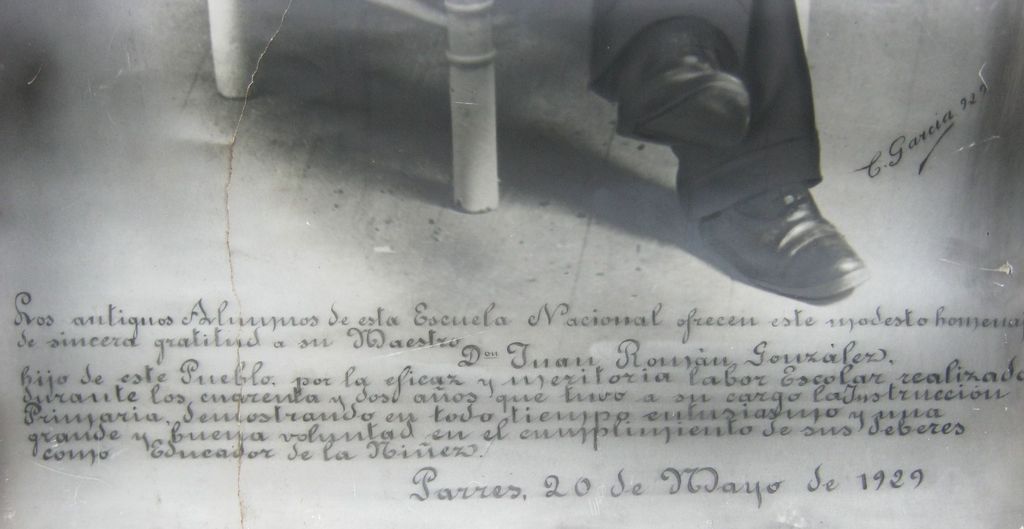 C. Garcia 929
Los antiguos Alumnos de esta Escuela Nacional ofrecen este modesto homena
de sincera gratitud a su Maestro
Don Juan Román González,
hijo de este Pueblo, por la eficaz y meritoria labor Escolar realizada
durante los cuarenta y dos años que tuvo a su cargo la Instrucción
Primaria, demostrando en todo tiempo entusiasmo y una
grande y buena voluntad en el cumplimiento de sus deberes
como Educador de la Niñez.
Parres, 20 de Mayo de 1929